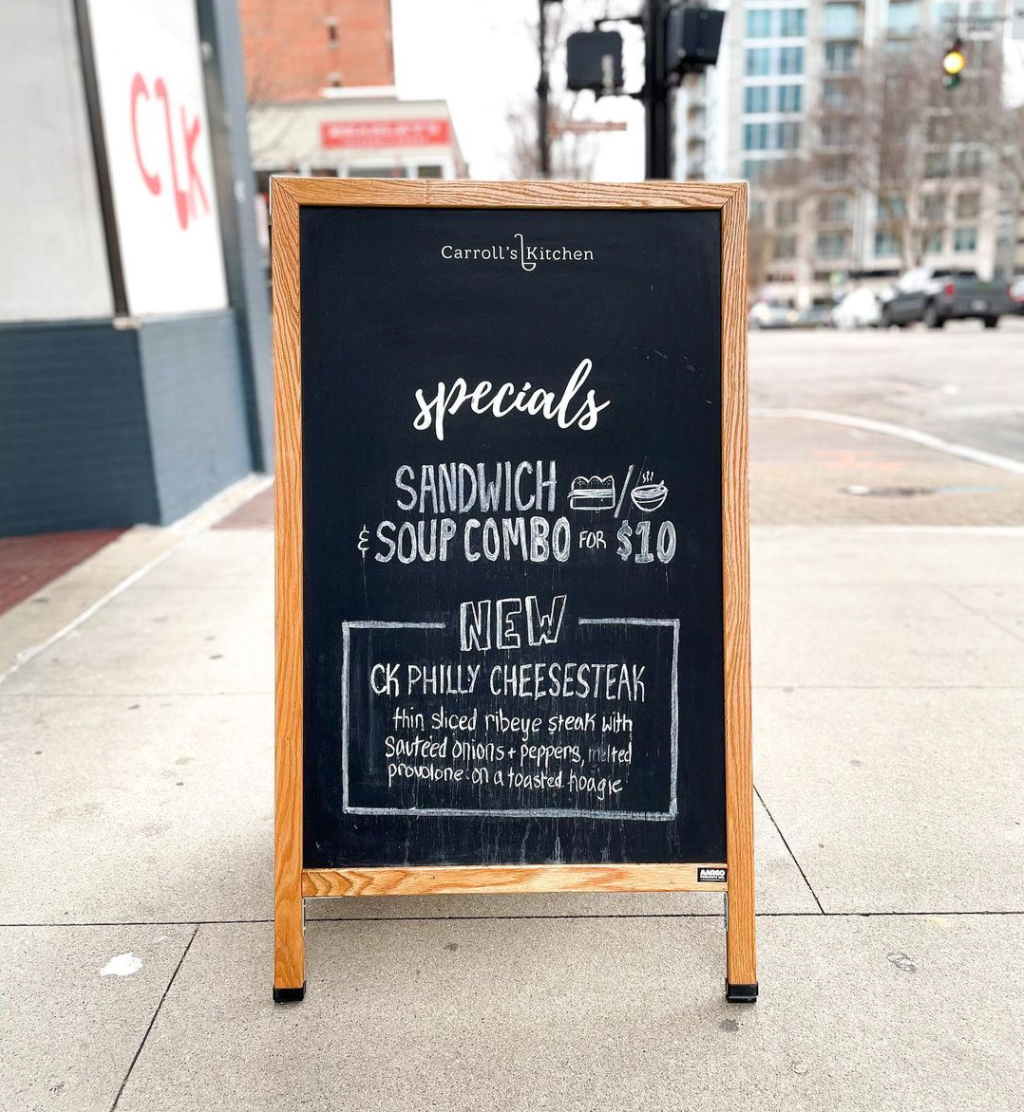 CK
BRADLEY'S
Carroll's Kitchen
specials
SANDWICH /
& SOUP COMBO FOR $10
NEW
CK PHILLY CHEESESTEAK
thin sliced ribeye steak with
sautéed onions + peppers, melted
provolone on a toasted hoagie
AARCO